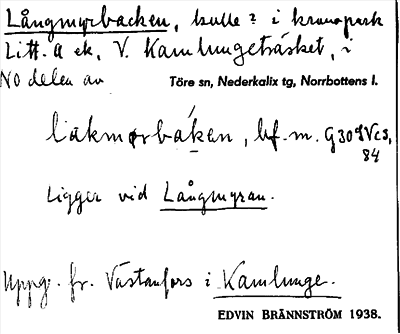 Långmyrbacken, kulle? i kronopark
Litt. A ek, V. Kamlungeträsket, i
NO delen av Töre sn, Nederkalix tg, Norrbottens l.
bf. m. G30 9Vcs,
84
Ligger vid Långmyran.
Uppg. fr. Västanfors i Kamlunge.
EDVIN BRÄNNSTRÖM 1938.